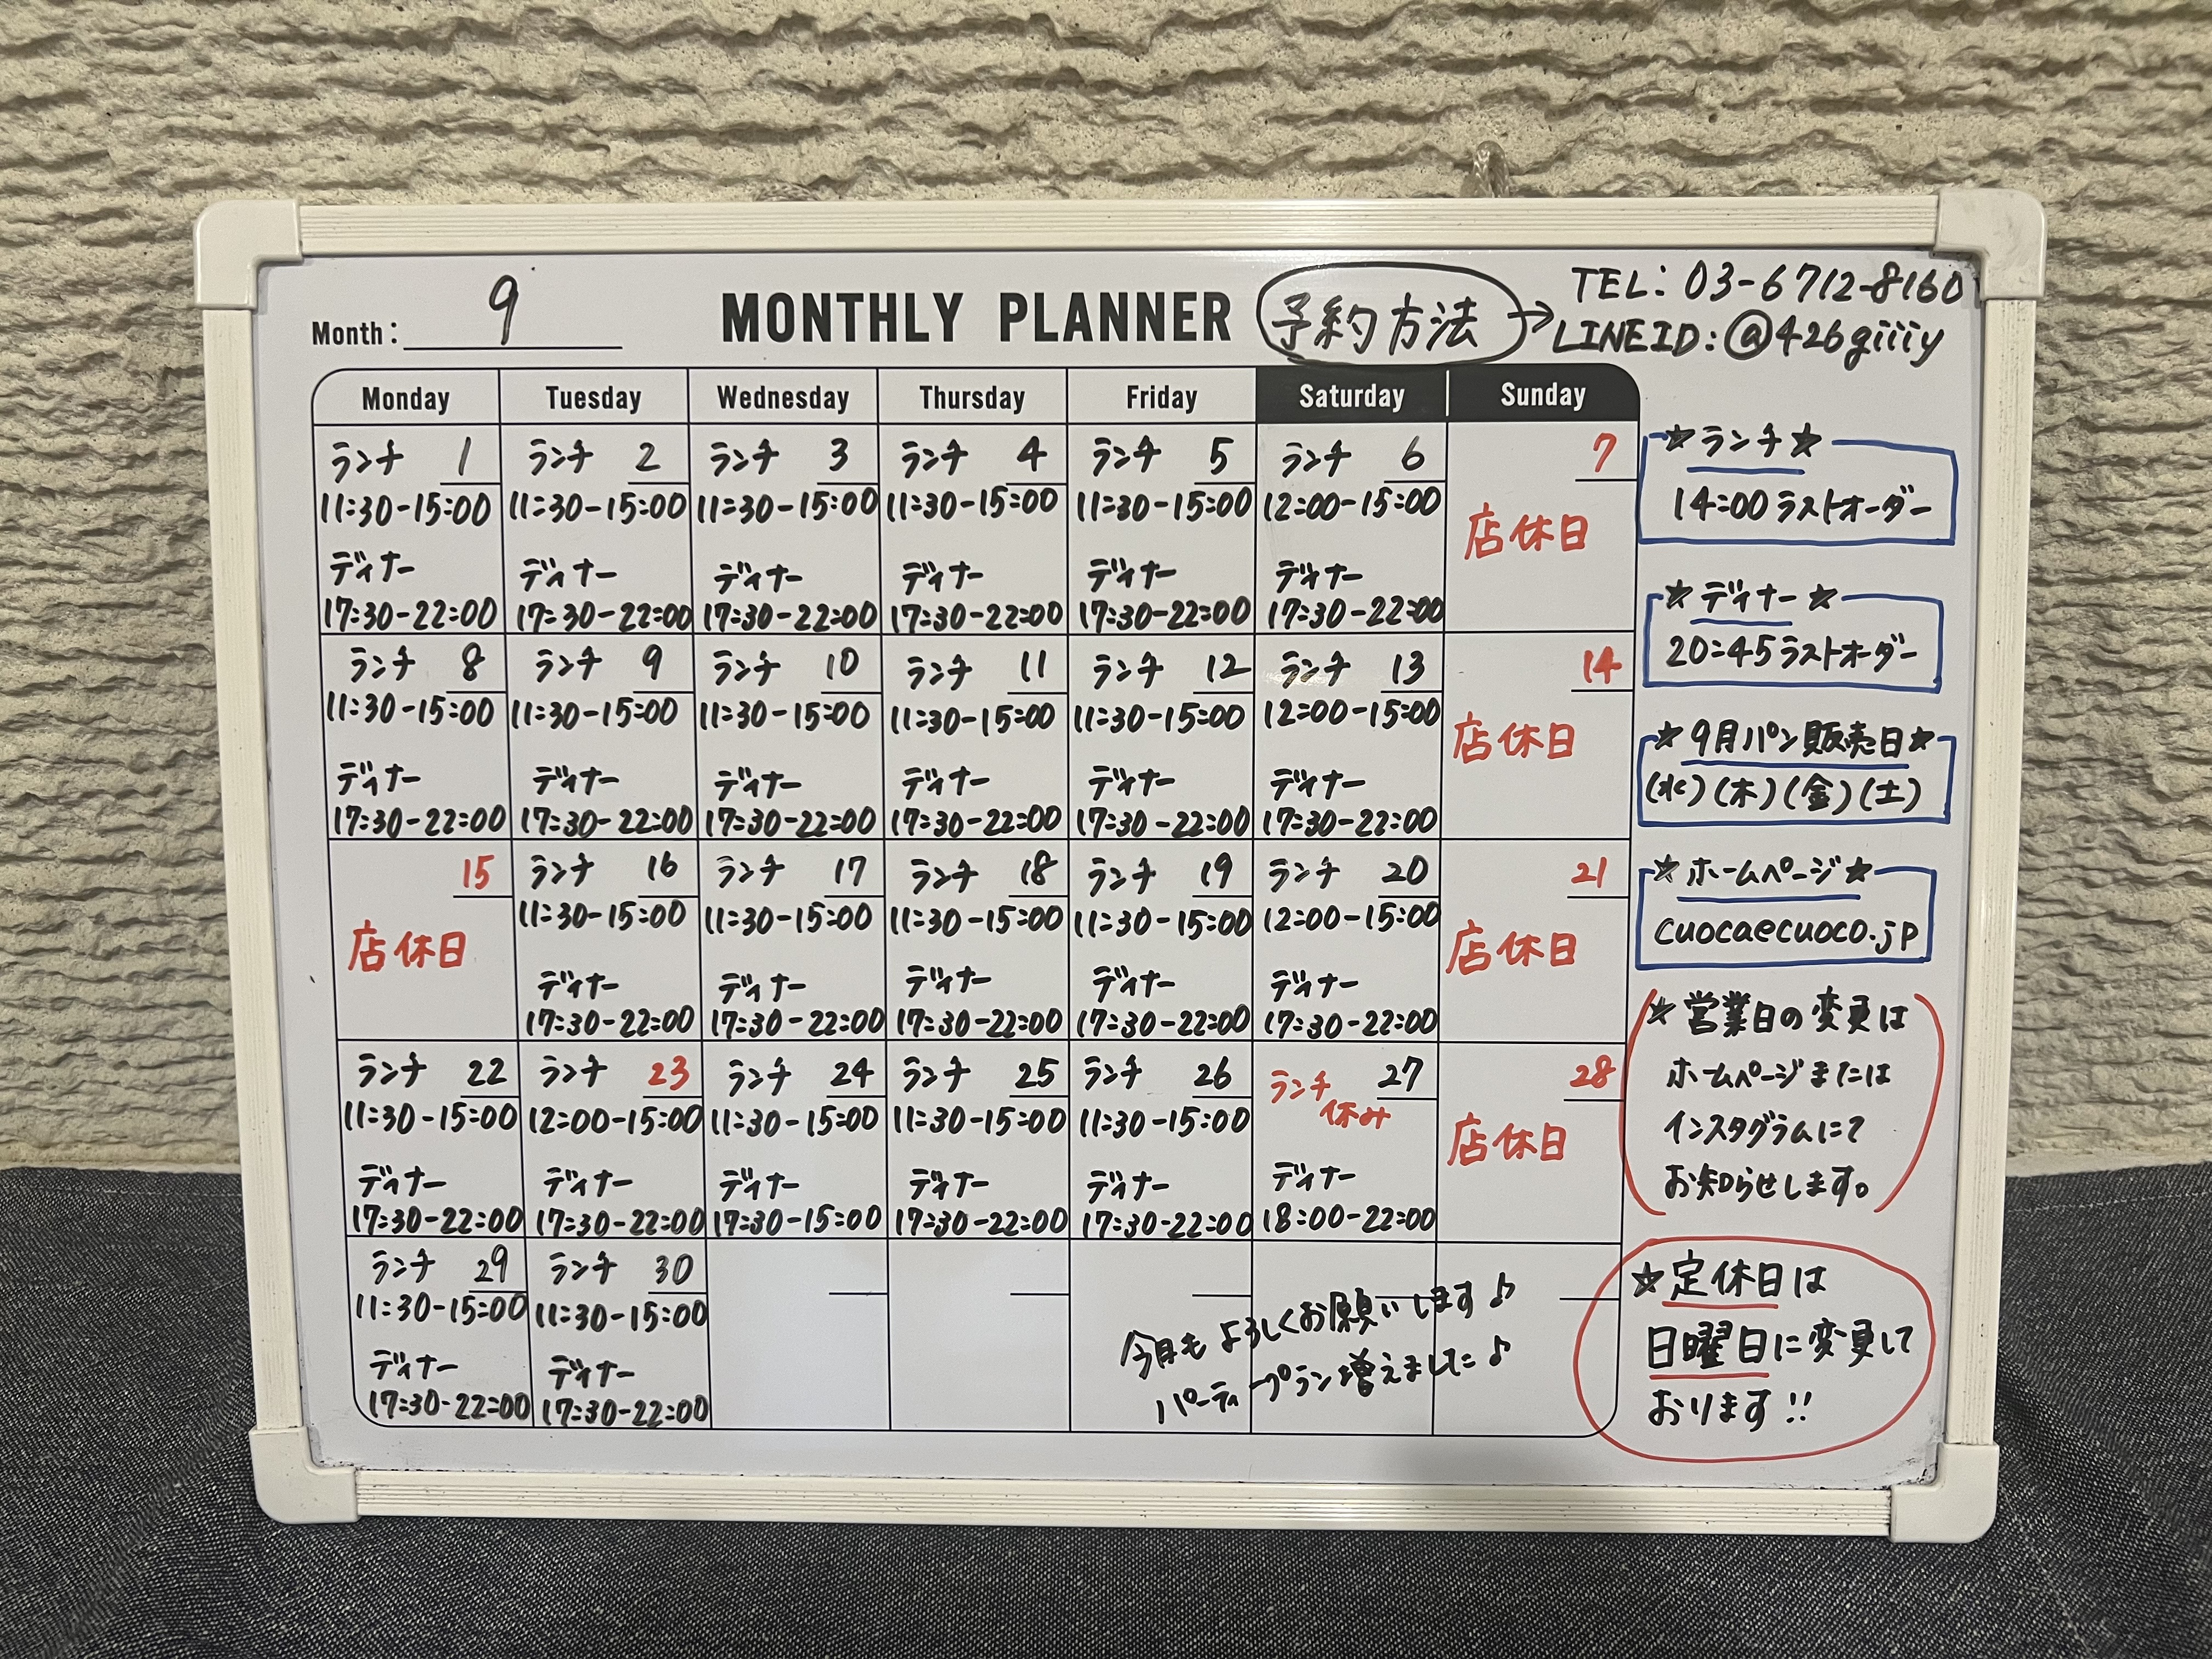 Month: 9
MONTHLY PLANNER
予約方法 → TEL: 03-6712-8160
LINE ID: @426giiiy
Monday Tuesday Wednesday Thursday Friday Saturday Sunday
ランチ 1 ランチ 2 ランチ 3 ランチ 4 ランチ 5 ランチ 6 7
11:30-15:00 11:30-15:00 11:30-15:00 11:30-15:00 11:30-15:00 12:00-15:00 店休日
ディナー ディナー ディナー ディナー ディナー ディナー
17:30-22:00 17:30-22:00 17:30-22:00 17:30-22:00 17:30-22:00 17:30-22:00
ランチ 8 ランチ 9 ランチ 10 ランチ 11 ランチ 12 ランチ 13 14
11:30-15:00 11:30-15:00 11:30-15:00 11:30-15:00 11:30-15:00 12:00-15:00 店休日
ディナー ディナー ディナー ディナー ディナー ディナー
17:30-22:00 17:30-22:00 17:30-22:00 17:30-22:00 17:30-22:00 17:30-22:00
15 ランチ 16 ランチ 17 ランチ 18 ランチ 19 ランチ 20 21
店休日 11:30-15:00 11:30-15:00 11:30-15:00 11:30-15:00 12:00-15:00 店休日
ディナー ディナー ディナー ディナー ディナー
17:30-22:00 17:30-22:00 17:30-22:00 17:30-22:00 17:30-22:00
ランチ 22 ランチ 23 ランチ 24 ランチ 25 ランチ 26 ランチ 27 28
11:30-15:00 12:00-15:00 11:30-15:00 11:30-15:00 11:30-15:00 休み 店休日
ディナー ディナー ディナー ディナー ディナー ディナー
17:30-22:00 17:30-22:00 17:30-15:00 17:30-22:00 17:30-22:00 18:00-22:00
ランチ 29 ランチ 30
11:30-15:00 11:30-15:00
ディナー ディナー
17:30-22:00 17:30-22:00
今月もよろしくお願いします♪
パーティープラン増えました♪
★ランチ★
14:00 ラストオーダー
★ディナー★
20:45 ラストオーダー
★9月パン販売日★
(水)(木)(金)(土)
★ホームページ★
cuocaecuoco.jp
★営業日の変更は
ホームページまたは
インスタグラムにて
お知らせします。
★定休日は
日曜日に変更して
おります!!